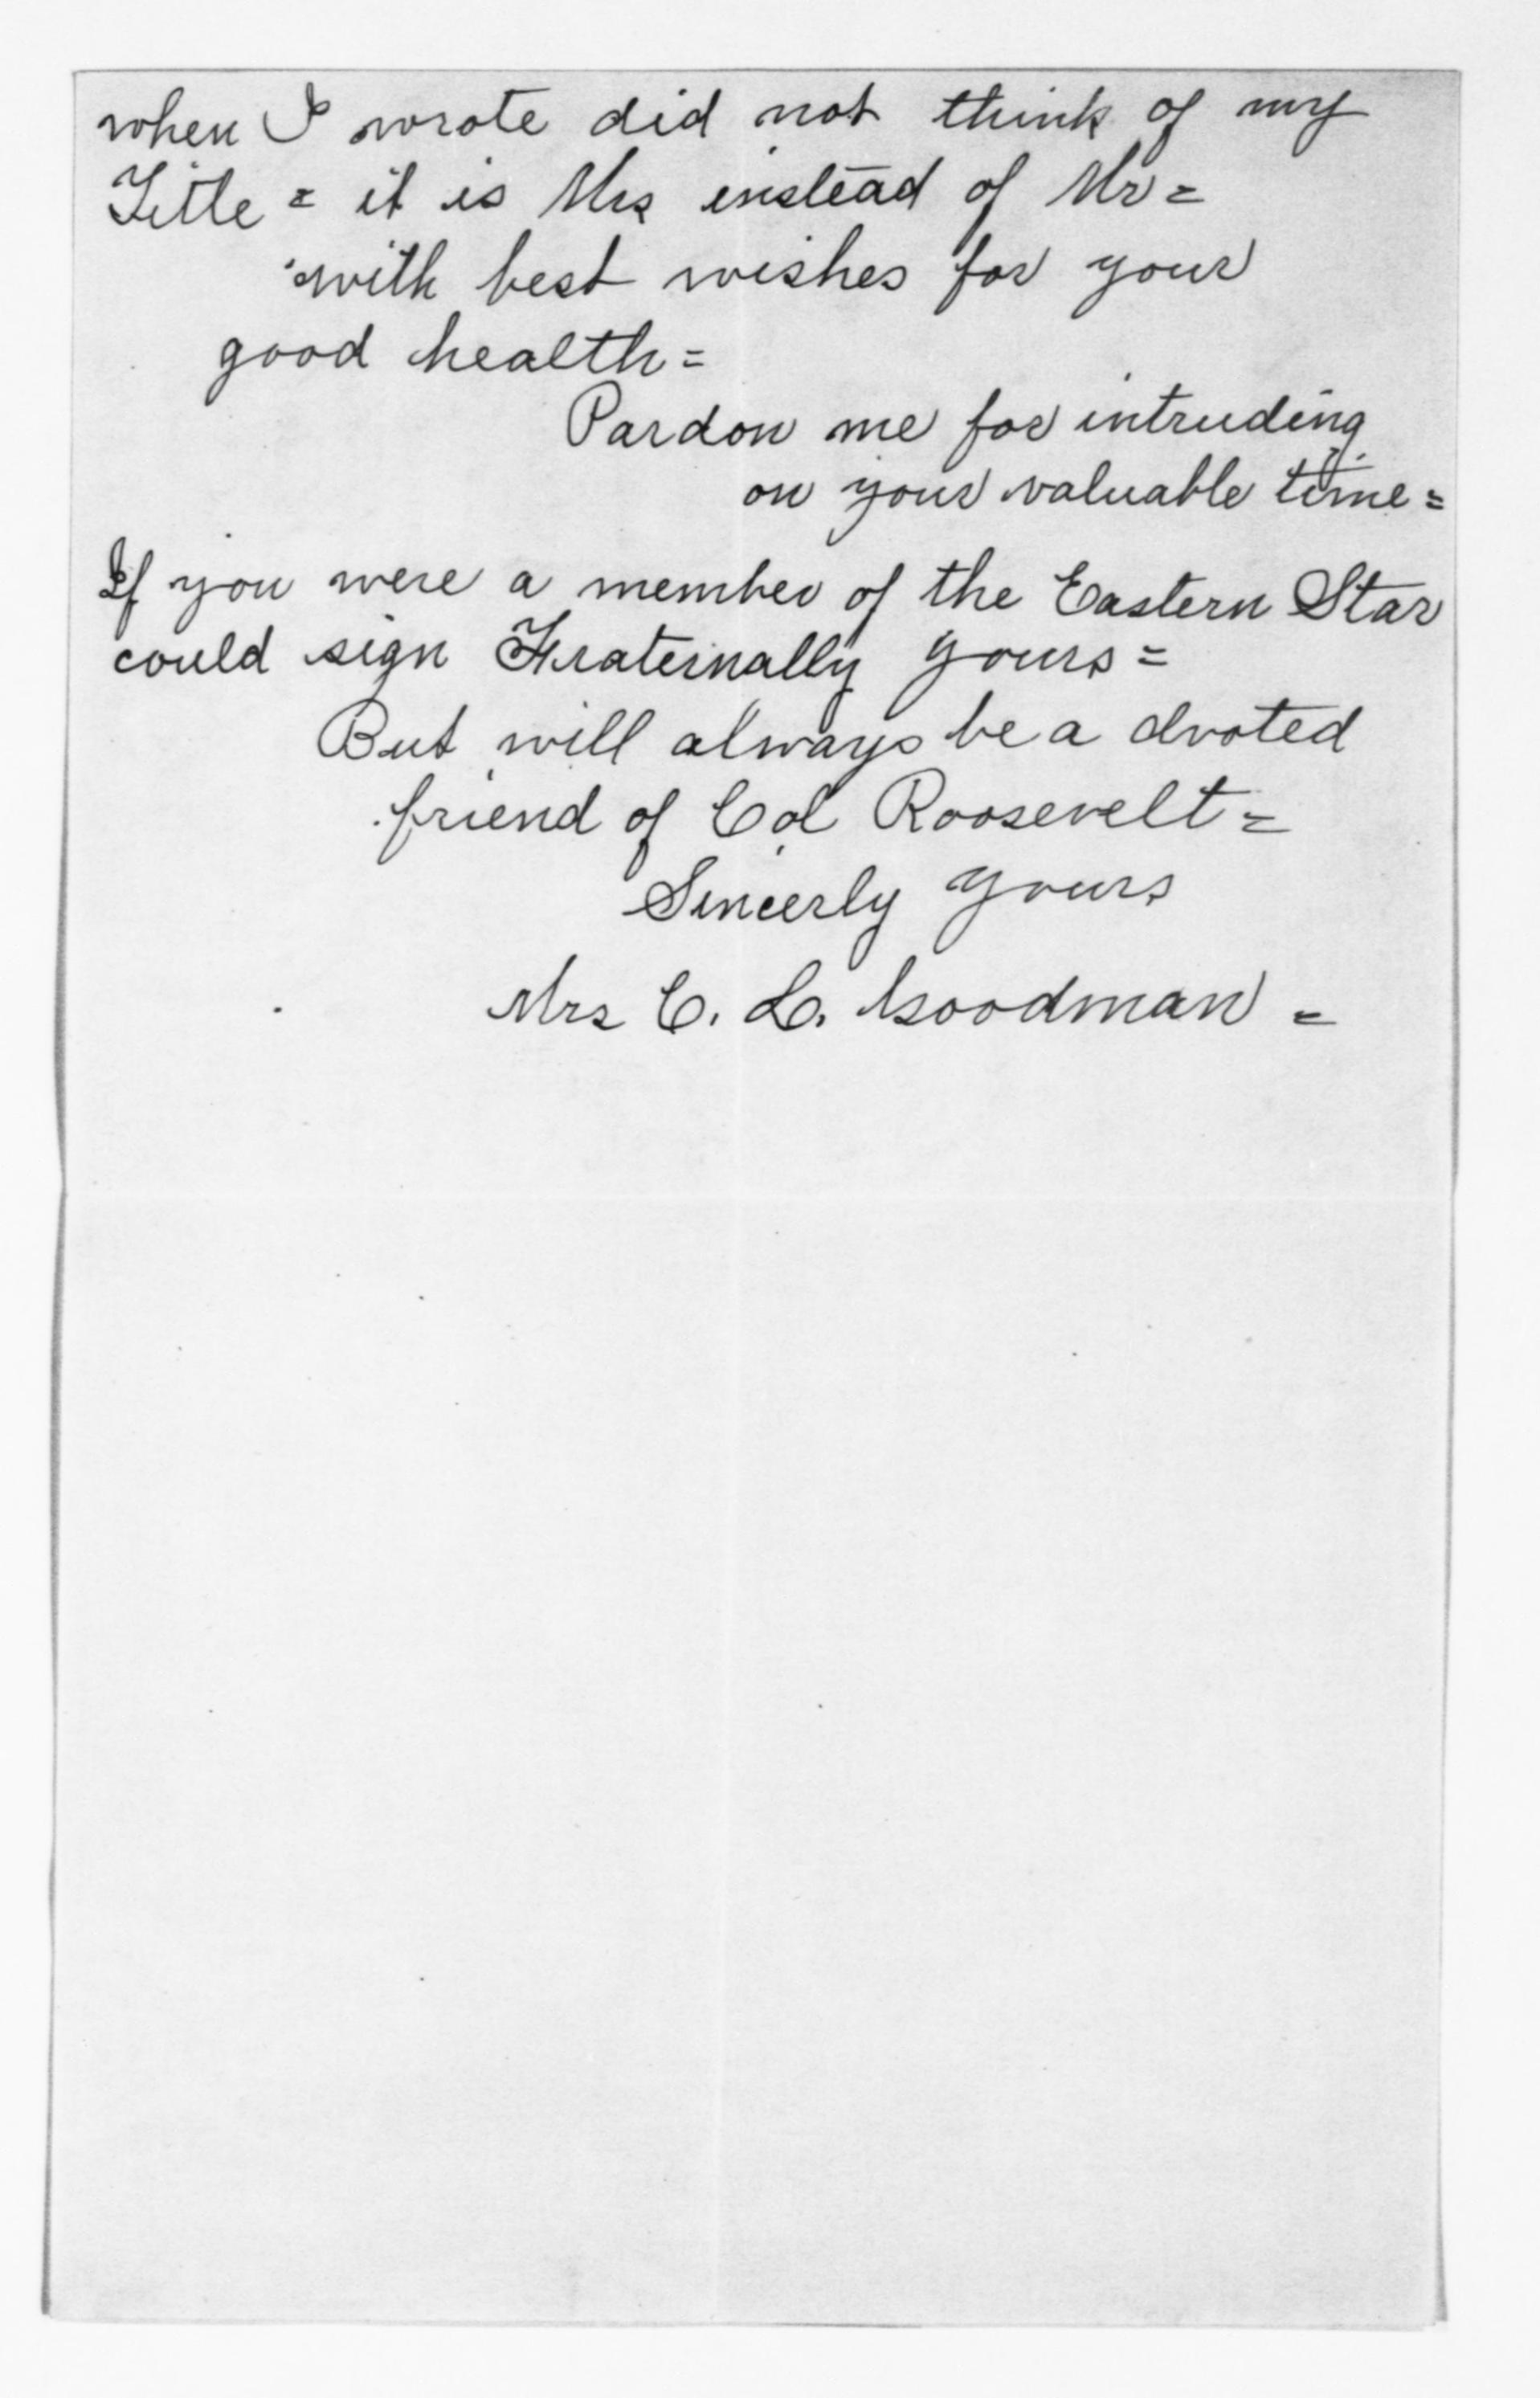 when I wrote did not think of my
Title = it is Mrs instead of Mr =
with best wishes for your
good health =
Pardon me for intruding
on your valuable time =
If you were a member of the Eastern Star
could sign Fraternally yours =
But will always be a dvoted
friend of Col Roosevelt =
Sincerly yours
Mrs C. L. Goodman =